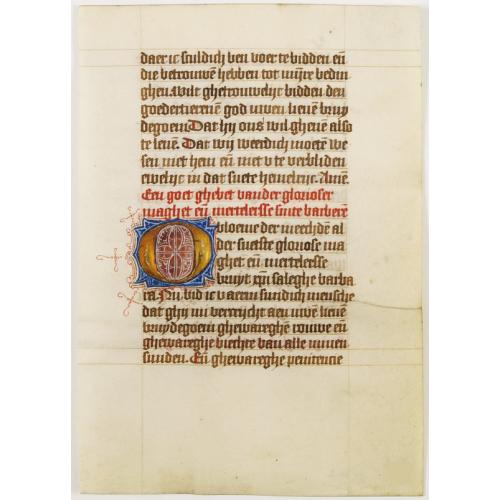 daer ic sculdich ben voer te bidden eñ
die betrouwē hebben tot mijre bedin
ghen. Wilt ghetrouwelijc bidden den
goedertierenē god uwen lieuē bruy
degoem. Dat hij ons wil gheuē also
te leuē. Dat wij weerdich moetē we
sen met hem eñ met v te verbliden
ewelijc in dat suete hemelrijc. Amē.
Een goet ghebet vander glorioser
maghet eñ mertelersse sinte barberē
O bloeme der meechdē al
der sueste gloriose ma
ghet eñ mertelersse
bruyt xp̄i saleghe barba
ra. Nu bid ic v aerm sundich mensche
dat ghij mi vercrijcht aen uwē lieuē
bruydegoem ghewareghe rouwe eñ
ghewareghe biechte van alle minen
sunden. Eñ ghewareghe penitencie